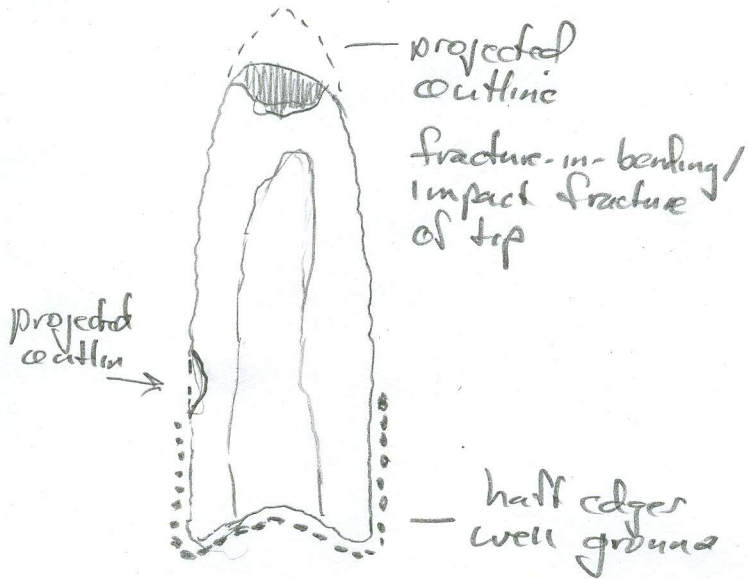 projected
outline
fracture-in-bending/
impact fracture
of tip
projected
outlin
haft edges
well ground